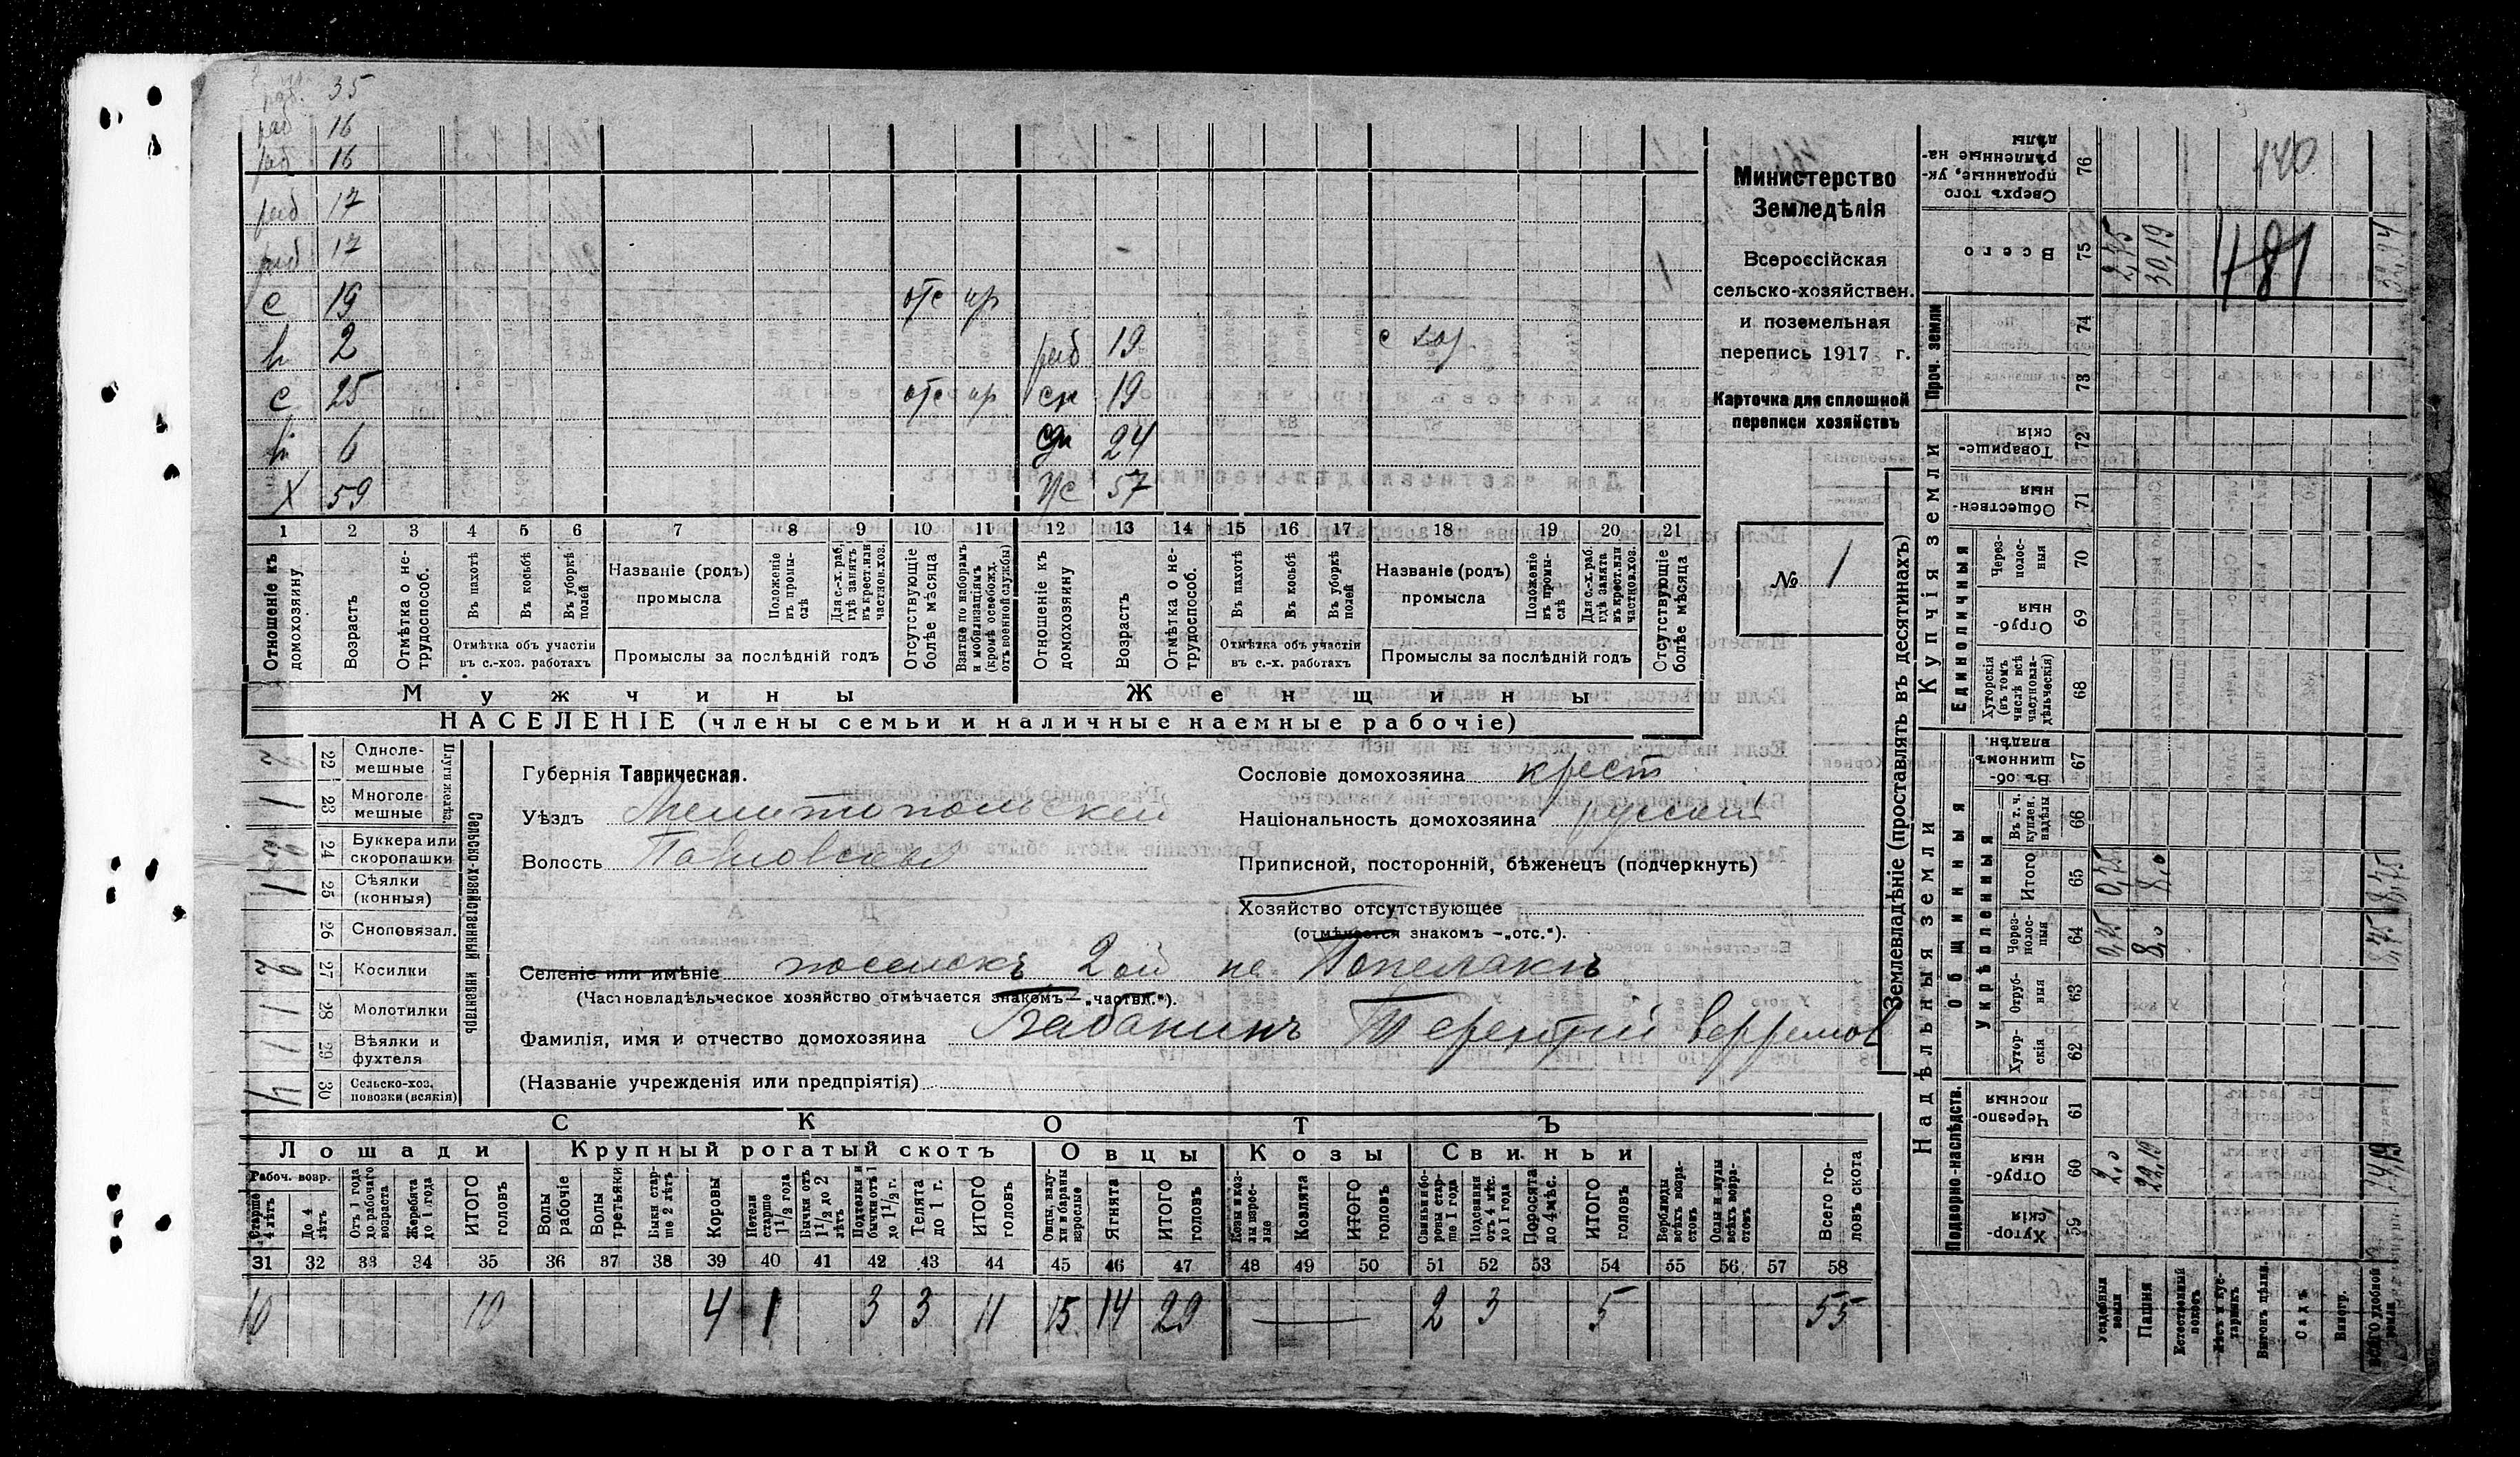 35
раб 16
раб 16
раб 17
раб 17
с 19 отс пр
2 раб 19 с хоз.
с 25 отс пр сн 19
6 24
Х 59 57
1 2 3 4 5 6 7 8 9 10 11 12 13 14 15 16 17 18 19 20 21
Отношеніе къ домохозяину
Возрастъ
Отмѣтка о не-
трудоспособ.
Въ пахотѣ
Въ косьбѣ
Въ уборкѣ полей
Отмѣтка объ участіи
въ с.-хоз. работахъ
Названіе (родъ)
промысла
Положеніе въ промы-
слѣ
Для с.-х. раб. гдѣ занятъ въ крест. или частнов. хоз.
Промыслы за послѣдній годъ
Отсутствующіе болѣе мѣсяца
Взятые по наборамъ и мобилизаціямъ (кромѣ освобожд. отъ военной службы)
Отношеніе къ домохозяину
Возрастъ
Отмѣтка о не-
трудоспособ.
Въ пахотѣ
Въ косьбѣ
Въ уборкѣ полей
Отмѣтка объ участіи
въ с.-х. работахъ
Названіе (родъ)
промысла
Положеніе въ промы-
слѣ
Для с.-х. раб. гдѣ занята въ крест. или частнов. хоз.
Промыслы за послѣдній годъ
Отсутствующіе болѣе мѣсяца
Мужчины Женщины
НАСЕЛЕНІЕ (члены семьи и наличные наемные рабочіе)
Министерство
Земледѣлія
Всероссійская
сельско-хозяйствен.
и поземельная
перепись 1917 г.
Карточка для сплошной
переписи хозяйствъ
№ 1
Губернія Таврическая.
Уѣздъ Мелитопольскій
Волость Павловская
Сословіе домохозяина крест
Національность домохозяина русскій
Приписной, посторонній, бѣженецъ (подчеркнуть)
Хозяйство отсутствующее
(отмѣчается знакомъ —„отс.“).
Селеніе или имѣніе поселокъ 2ой на
(Частновладѣльческое хозяйство отмѣчается знакомъ—„частвл.“).
Фамилія, имя и отчество домохозяина Бабанинъ Терентій
(Названіе учрежденія или предпріятія)
Сельско-хозяйственный инвентарь
Плуги желѣз.
22 Одноле-
мешные
1 23 Многоле-
мешные
24 Буккера или
скоропашки
1 25 Сѣялки
(конныя)
26 Сноповязал.
2 27 Косилки
1 28 Молотилки
1 29 Вѣялки и
фухтеля
4 30 Сельско-хоз.
повозки (всякія)
СКОТЪ
Лошади Крупный рогатый скотъ Овцы Козы Свиньи
Рабоч. возр.
Старше 4 лѣтъ
До 4 лѣтъ
Отъ 1 года до рабочаго возраста
Жеребята до 1 года
ИТОГО головъ
Волы рабочіе
Волы третьяки
Быки стар-
ше 2 лѣтъ
Коровы
Нетели старше 1½ года
Бычки отъ 1½ до 2 лѣтъ
Подтелки и бычки отъ 1 до 1½ г.
Телята до 1 г.
ИТОГО головъ
Овцы, валу-
хи и бараны взрослые
Ягнята
ИТОГО головъ
Козы и коз-
лы взрос-
лые
Козлята
ИТОГО головъ
Свиньи и бо-
ровы стар-
ше 1 года
Подсвинки отъ 4 мѣс. до 1 года
Поросята до 4 мѣс.
ИТОГО головъ
Верблюды всѣхъ возра-
стовъ
Ослы и мулы всѣхъ возра-
стовъ
Всего го-
ловъ скота
31 32 33 34 35 36 37 38 39 40 41 42 43 44 45 46 47 48 49 50 51 52 53 54 55 56 57 58
10 10 4 1 3 3 11 15 14 29 — 2 3 5 55
Землевладѣніе (проставлять въ десятинахъ)
Надѣльныя земли Купчія земли Проч. земли
Подворно-наслѣдств.
Общинныя
Укрѣпленныя
Единоличныя
Хутор-
скія 59
Отруб-
ныя 60 2,0 22,19
Черезпо-
лосныя 61
Хутор-
скія 62
Отруб-
ныя 63
Через-
полос-
ныя 64 0,75 8,0 8,75
Итого 65 0,75 8,0 8,75
Въ т. ч. куплен. надѣлы 66
Въ об-
щинномъ владѣн. 67
Хуторскія (въ томъ числѣ всѣ частновла-
дѣльческія) 68
Отруб-
ныя 69
Через-
полос-
ныя 70
Обществен-
ныя 71
Товарище-
скія 72
73
74
Всего 75 2,75 30,19 481
Сверхъ того проданные, ук-
рѣпленные на-
дѣлы 76 140
Усадебныя земли
Пашня
Естественный покосъ
Лѣсъ и кус-
тарникъ
Выгонъ цѣлин.
Садъ
Виногр.
Всего удобной земли